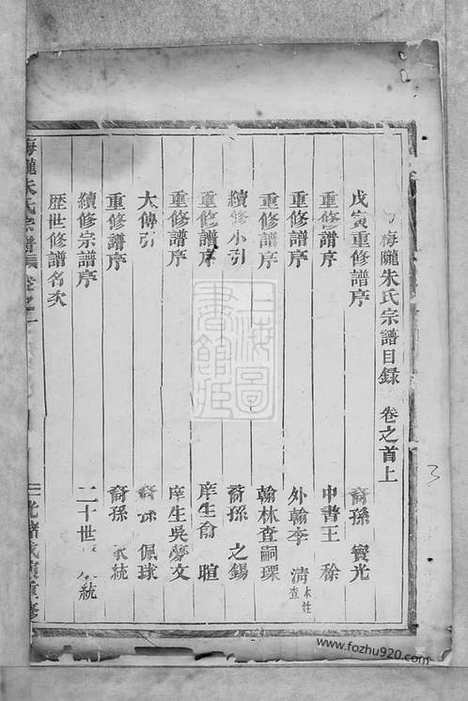 梅隴朱氏宗譜目錄 卷之首上
戊寅重修譜序 裔孫 寶光
重修譜序 中書王 稌
重修譜序 外翰李 清
重修譜序 翰林查嗣瑮
續修小引 裔孫 之錫
重修譜序 庠生俞 暄
重修譜序 庠生吳夢文
大傳引 裔孫 佩球
重修譜序 裔孫 統
續修宗譜序 二十世 統
歷世修譜名次
梅隴朱氏宗譜 卷之
光緒戊寅重修
上海圖書館藏
3
www.fozhu920.com